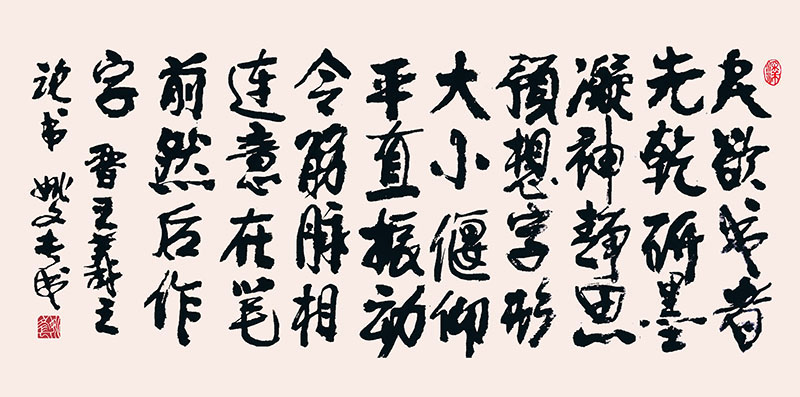 夫欲书者
先乾研墨
凝神静思
预想字形
大小偃仰
平直振动
令筋脉相
连意在笔
前然后作
字 晋王羲之
论书 姚文书